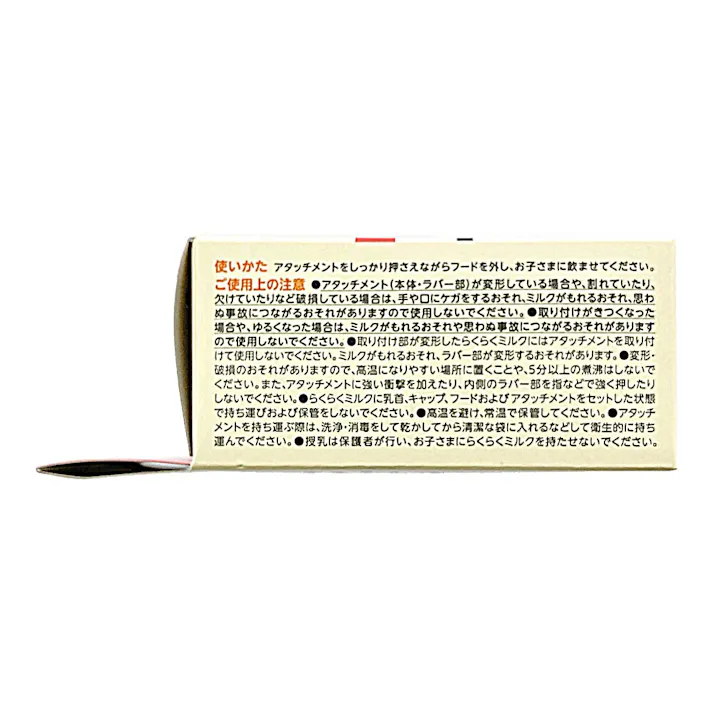 使いかた アタッチメントをしっかり押さえながらフードを外し、お子さまに飲ませてください。
ご使用上の注意 ●アタッチメント(本体・ラバー部)が変形している場合や、割れていたり、
欠けていたりなど破損している場合は、手や口にケガをするおそれ、ミルクがもれるおそれ、思わ
ぬ事故につながるおそれがありますので使用しないでください。●取り付けがきつくなった
場合や、ゆるくなった場合は、ミルクがもれるおそれや思わぬ事故につながるおそれがあります
ので使用しないでください。●取り付け部が変形したらくらくミルクにはアタッチメントを取り付
けて使用しないでください。ミルクがもれるおそれ、ラバー部が変形するおそれがあります。●変形・
破損のおそれがありますので、高温になりやすい場所に置くことや、5分以上の煮沸はしないで
ください。また、アタッチメントに強い衝撃を加えたり、内側のラバー部を指などで強く押したり
しないでください。●らくらくミルクに乳首、キャップ、フードおよびアタッチメントをセットした状態
で持ち運びおよび保管をしないでください。●高温を避け、常温で保管してください。●アタッチ
メントを持ち運ぶ際は、洗浄・消毒をして乾かしてから清潔な袋に入れるなどして衛生的に持ち
運んでください。●授乳は保護者が行い、お子さまにらくらくミルクを持たせないでください。